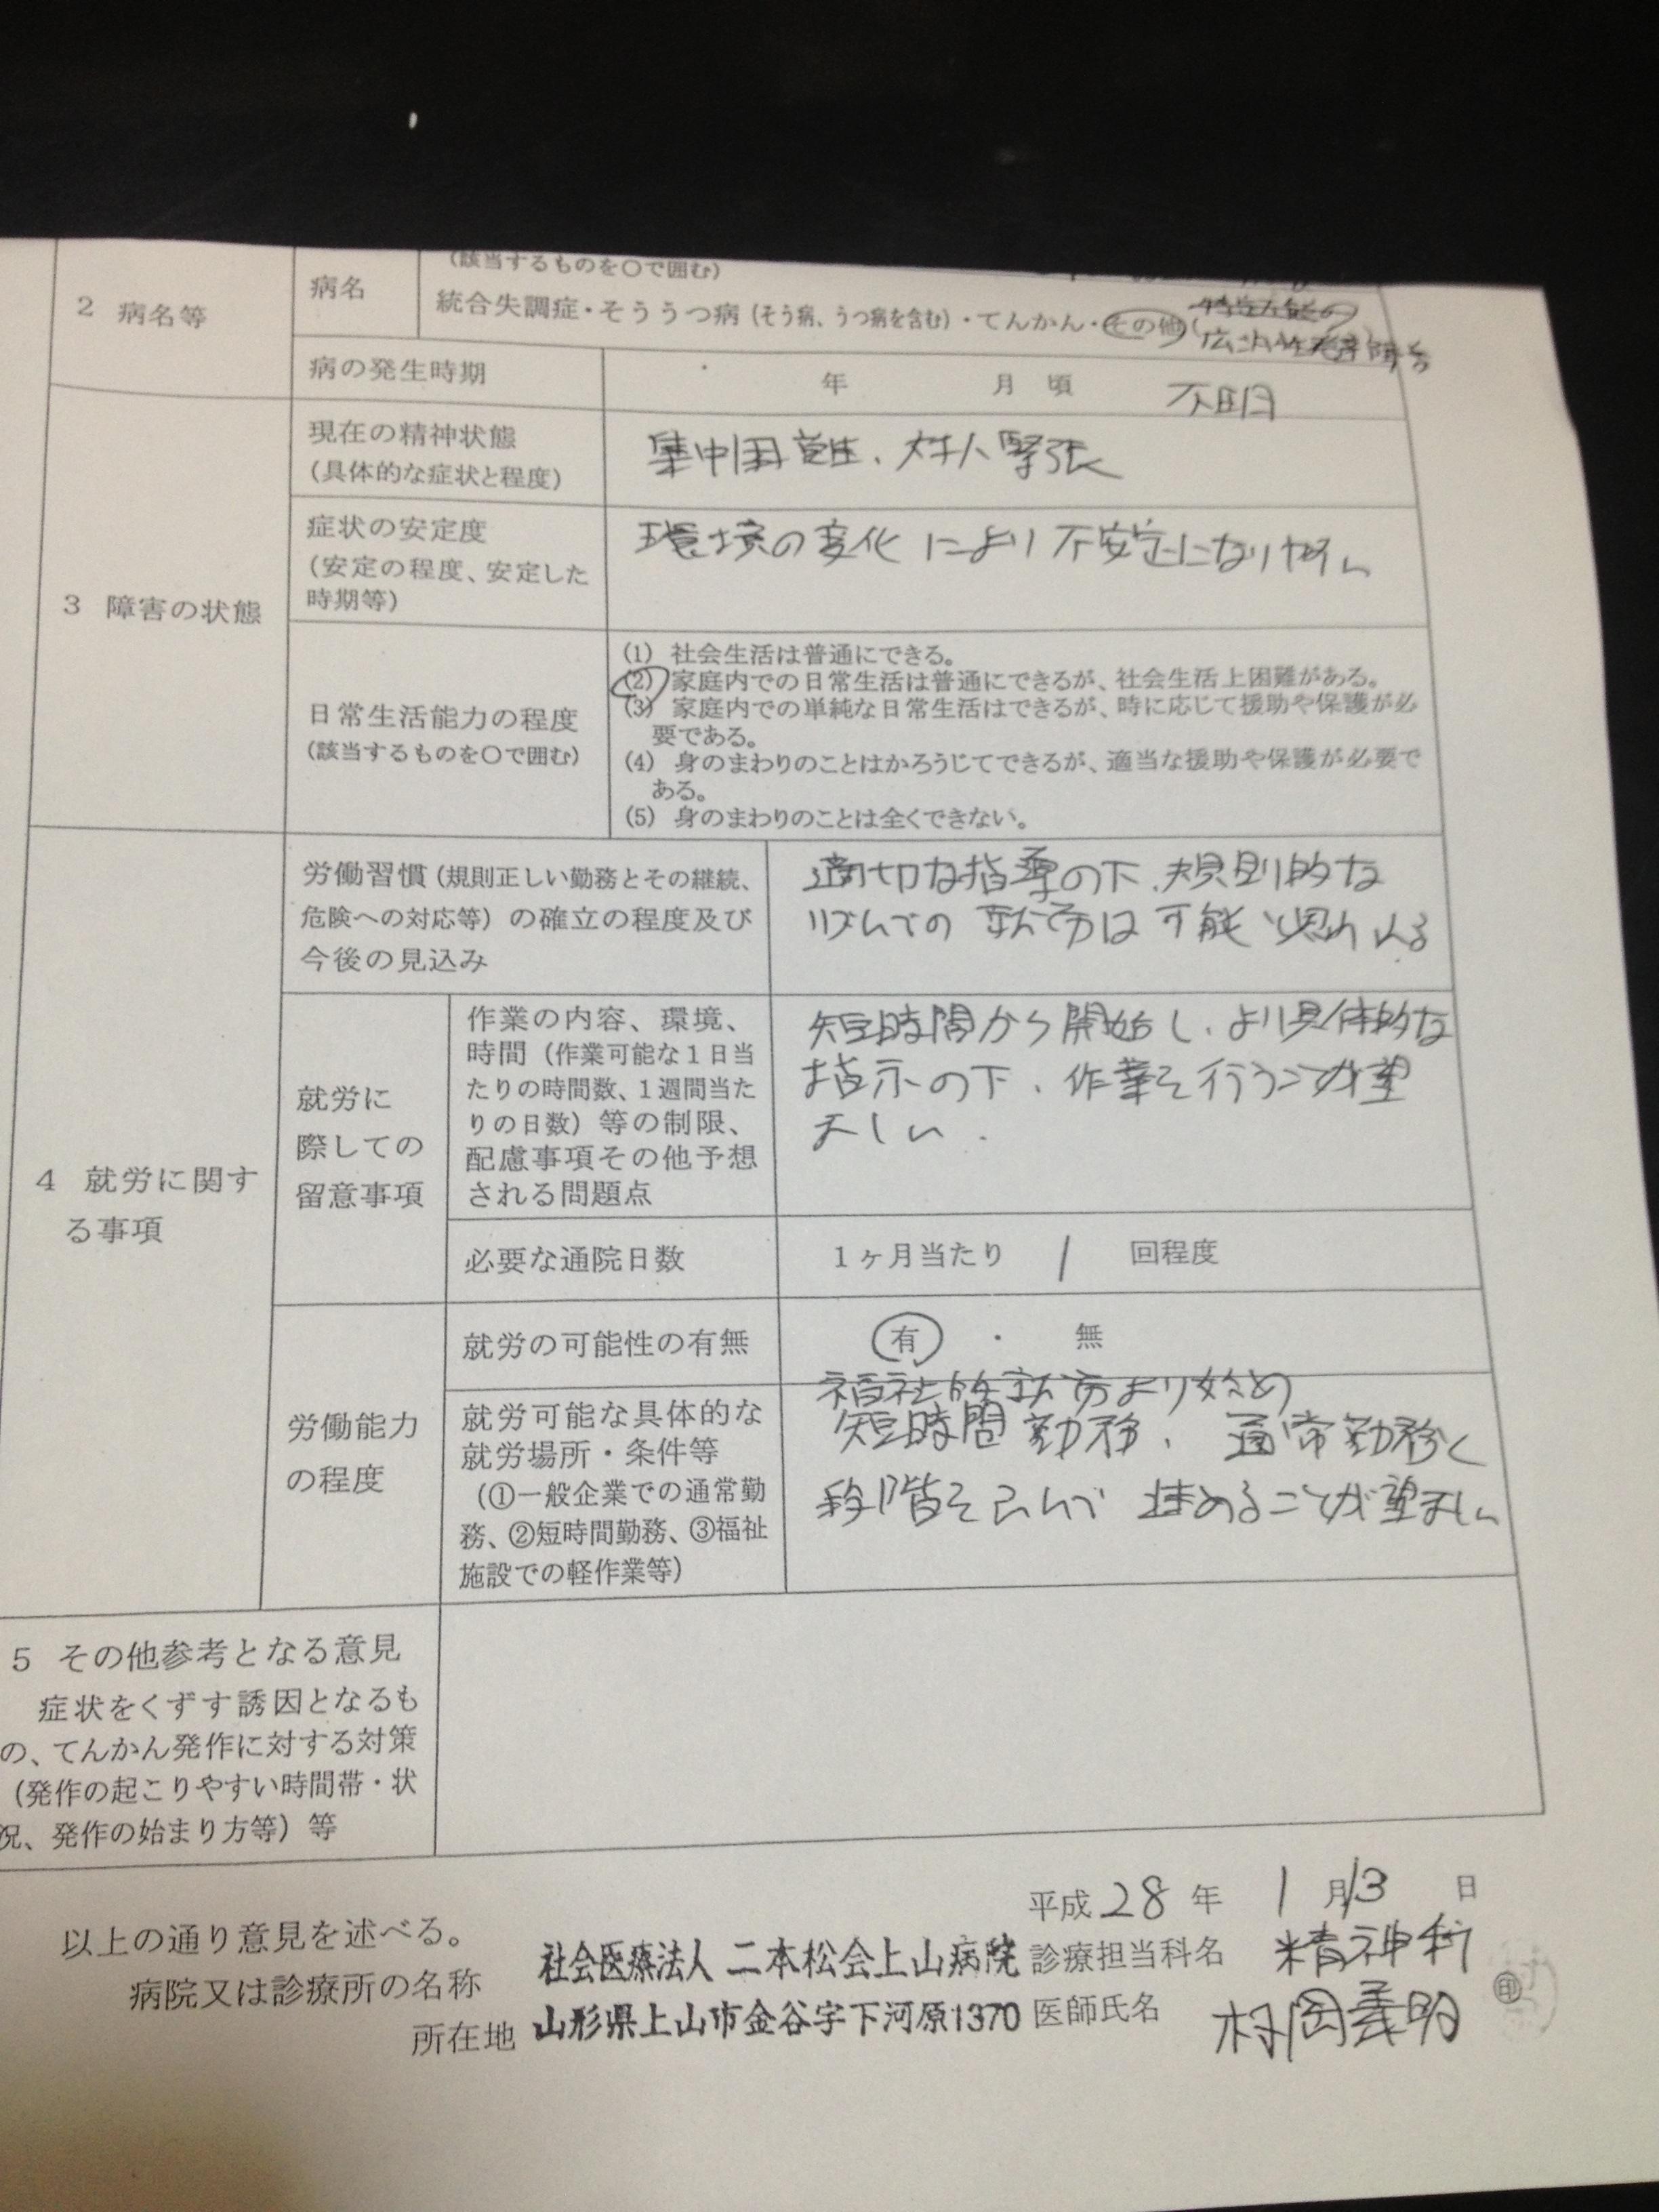 (該当するものを○で囲む)
2 病名等
病名
統合失調症・そううつ病(そう病、うつ病を含む)・てんかん・その他(
特定不能の
広汎性発達障害
病の発生時期
年 月 頃 不明
3 障害の状態
現在の精神状態
(具体的な症状と程度)
集中困難、対人緊張
症状の安定度
(安定の程度、安定した
時期等)
環境の変化により不安定になりやすい
日常生活能力の程度
(該当するものを○で囲む)
(1) 社会生活は普通にできる。
(2) 家庭内での日常生活は普通にできるが、社会生活上困難がある。
(3) 家庭内での単純な日常生活はできるが、時に応じて援助や保護が必
要である。
(4) 身のまわりのことはかろうじてできるが、適当な援助や保護が必要で
ある。
(5) 身のまわりのことは全くできない。
4 就労に関す
る事項
労働習慣(規則正しい勤務とその継続、
危険への対応等)の確立の程度及び
今後の見込み
適切な指導の下、規則的な
リズムでの就労は可能と思われる
就労に
際しての
留意事項
作業の内容、環境、
時間(作業可能な1日当
たりの時間数、1週間当た
りの日数)等の制限、
配慮事項その他予想
される問題点
短時間から開始し、より具体的な
指示の下、作業を行うことが望
ましい.
必要な通院日数
1ヶ月当たり 1 回程度
労働能力
の程度
就労の可能性の有無
有 ・ 無
就労可能な具体的な
就労場所・条件等
(①一般企業での通常勤
務、②短時間勤務、③福祉
施設での軽作業等)
福祉的就労より始め
短時間勤務、通常勤務と
段階をふんで進めることが望ましい
5 その他参考となる意見
症状をくずす誘因となるも
の、てんかん発作に対する対策
(発作の起こりやすい時間帯・状
況、発作の始まり方等)等
平成28年 1月13日
以上の通り意見を述べる。
病院又は診療所の名称 社会医療法人 二本松会上山病院 診療担当科名 精神科
所在地 山形県上山市金谷字下河原1370 医師氏名 村岡義明 印